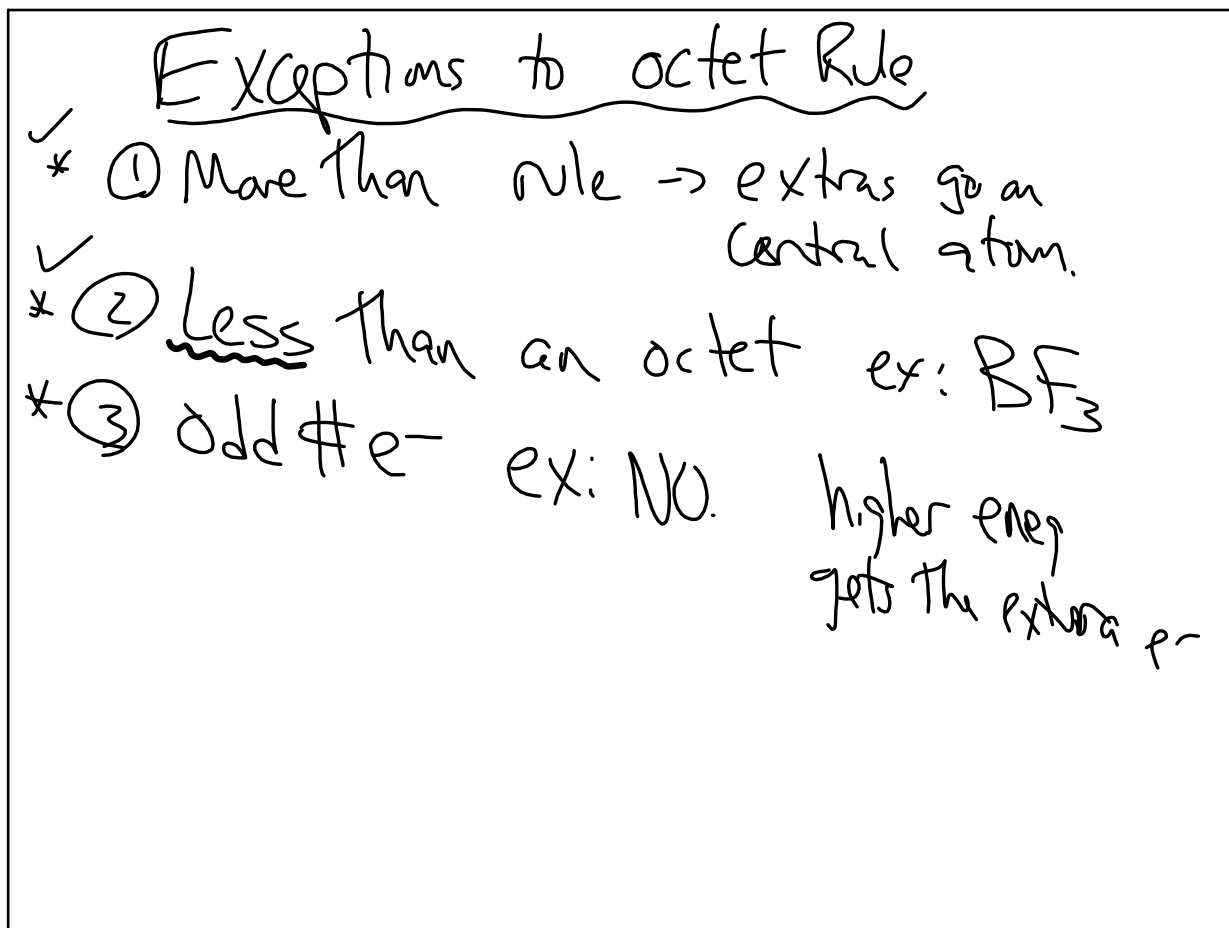 Exceptions to octet Rule
✓
* ① More than rule → extras go on
central atom.
✓
* ② Less than an octet ex: BF₃
* ③ Odd # e⁻ ex: NO.
higher eneg
gets the extra e⁻